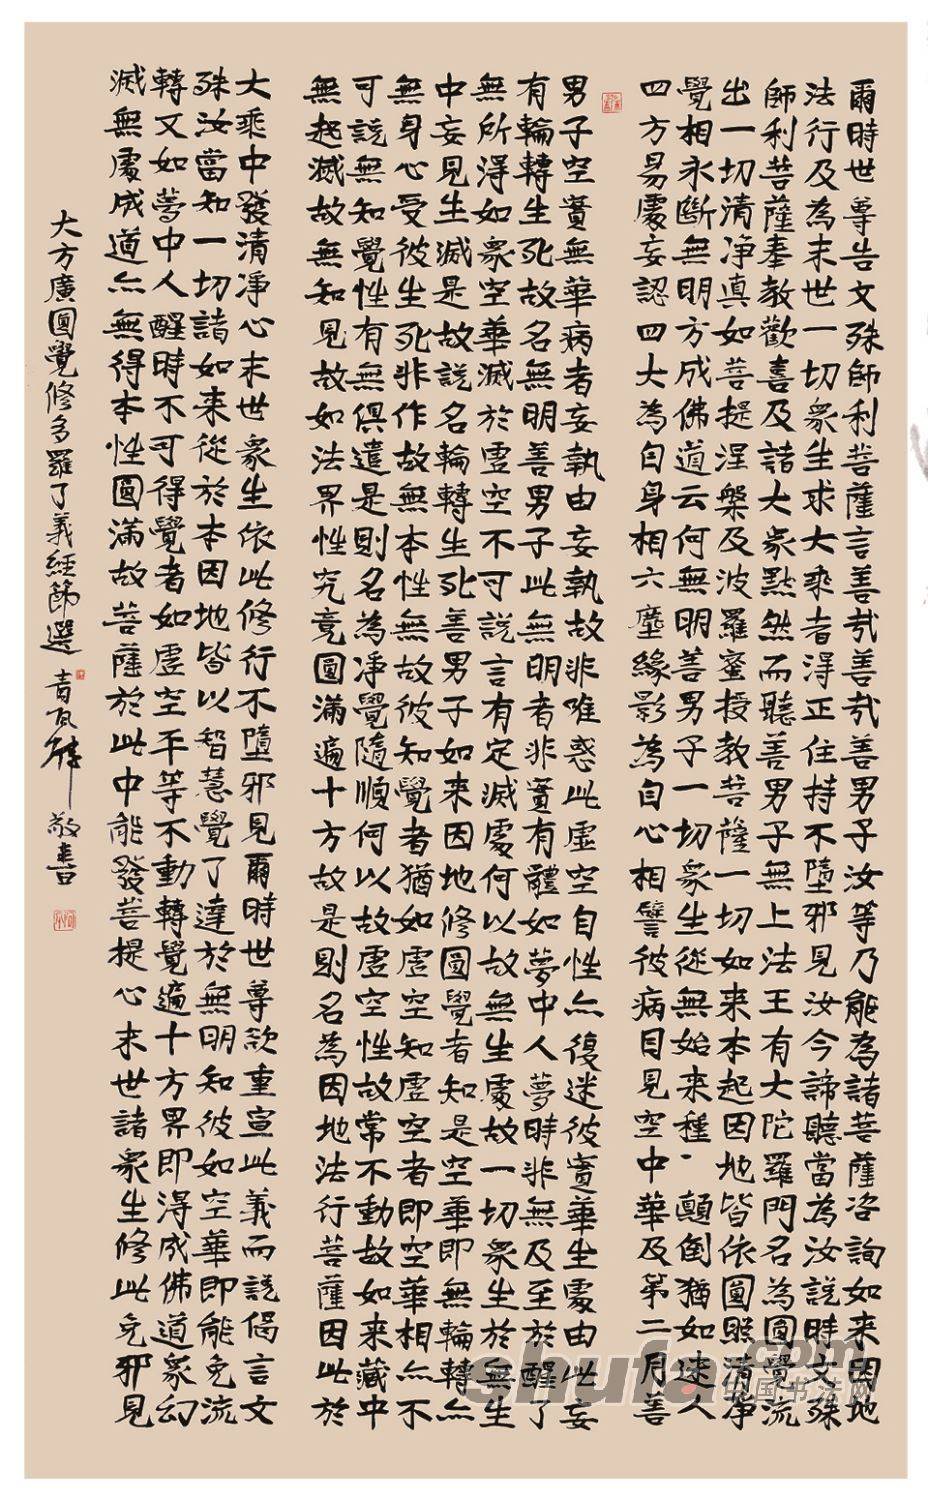 爾時世尊告文殊師利菩薩言善哉善哉善男子汝等乃能為諸菩薩咨詢如来因地
法行及為末世一切衆生求大乘者得正住持不墮邪見汝今諦聽當為汝説時文殊
師利菩薩奉教歡喜及諸大衆默然而聽善男子無上法王有大陀羅門名為圓覺流
出一切清净真如菩提涅槃及波羅蜜授教菩薩一切如来本起因地皆依圓照清净
覺相永斷無明方成佛道云何無明善男子一切衆生從無始来種、顛倒猶如迷人
四方易處妄認四大為自身相六塵緣影為自心相譬彼病目見空中華及第二月善
男子空實無華病者妄執由妄執故非唯惑此虚空自性亦復迷彼實華生處由此妄
有輪轉生死故名無明善男子此無明者非實有體如夢中人夢時非無及至於醒了
無所得如衆空華滅於虚空不可説言有定滅處何以故無生處故一切衆生於無生
中妄見生滅是故説名輪轉生死善男子如来因地修圓覺者知是空華即無輪轉亦
無身心受彼生死非作故無本性無故彼知覺者猶如虚空知虚空者即空華相亦不
可説無知覺性有無俱遣是則名為淨覺隨順何以故虚空性故常不動故如来藏中
無起滅故無知見故如法界性究竟圓滿遍十方故是則名為因地法行菩薩因此於
大乘中發清净心末世衆生依此修行不墮邪見爾時世尊欲重宣此義而説偈言文
殊汝當知一切諸如来從於本因地皆以智慧覺了達於無明知彼如空華即能免流
轉又如夢中人醒時不可得覺者如虚空平等不動轉覺遍十方界即得成佛道衆幻
滅無處成道亦無得本性圓滿故菩薩於此中能發菩提心末世諸衆生修此免邪見
大方廣圓覺修多羅了義經節選 青瓦 敬書
shufa.com
中国书法网